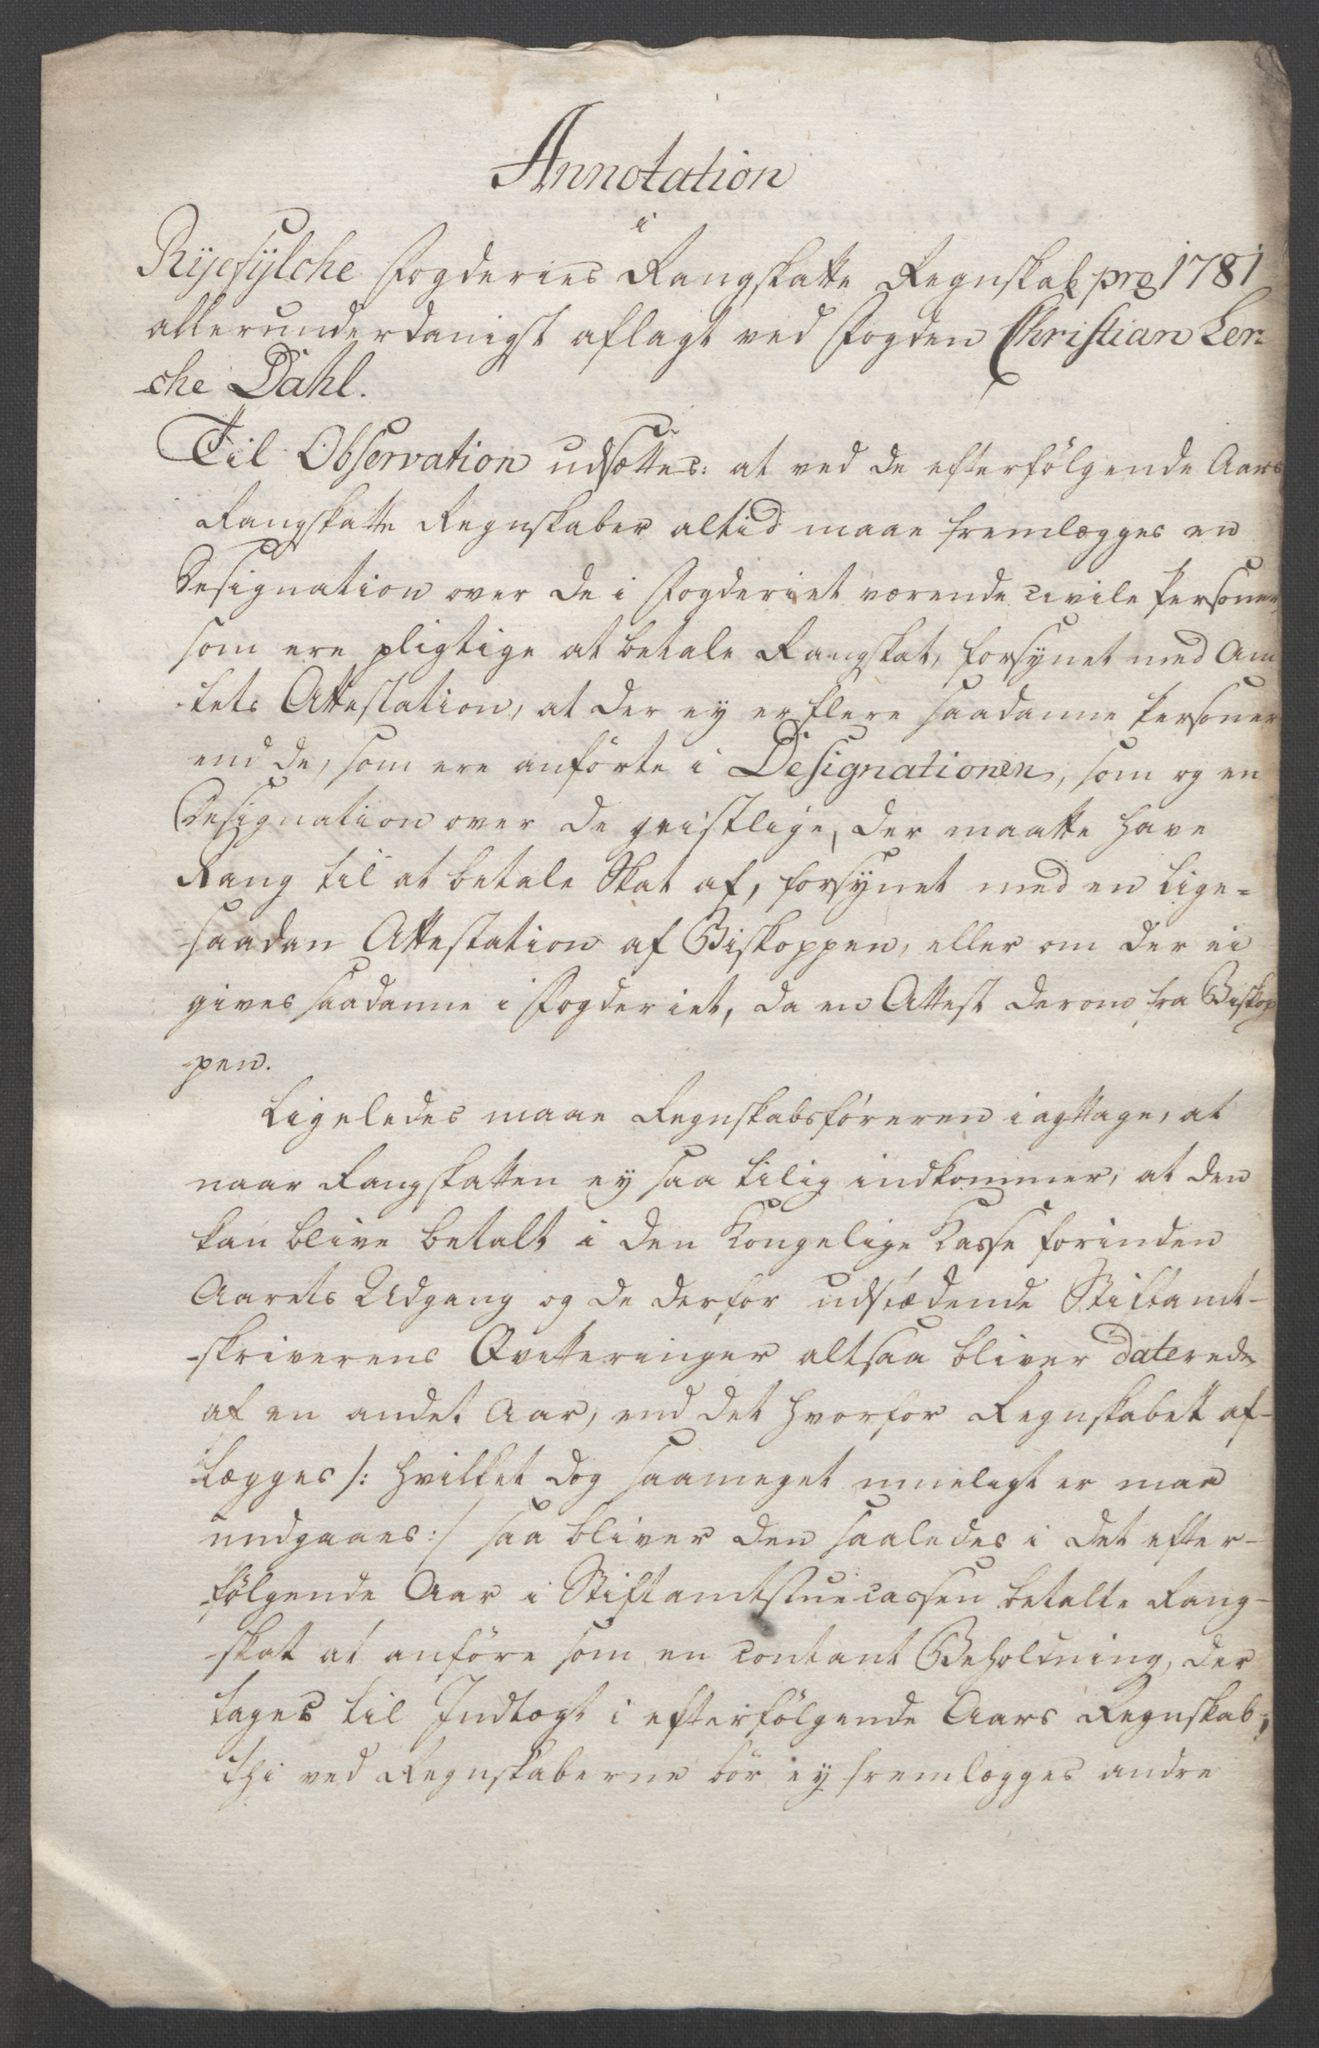 Annotation
i
Ryefylche Fogderies Rangskatte Regnskab pro 1781
allerunderdanigst aflagt ved Fogden Christian Ler-
-che Dahl.
Til Observation udsættes: at ved de efterfølgende Aars
Rangskatte Regnskaber altid maae fremlægges en
Designation over de i Fogderiet værende civile Personer,
som ere pligtige at betale Rangskat, forsynet med Am
-tets Attestation, at der ey er flere saadanne Personer
end de, som ere anförte i Designationen, som og en
Designation over de geistlige, der maatte have
Rang til at betale Skat af, forsynet med en lige-
-saadan Attestation af Biskoppen, eller om der ei
gives saadanne i Fogderiet, da en Attest derom fra Biskop
-pen.
Ligeledes maae Regnskabsföreren iagttage, at
naar Rangskatten ey saa tilig indkommer, at den
kan blive betalt i den Kongelige Kasse forinden
Aarets Udgang og de derfor udstædende Stiftamt-
-skriverens Qvitteringer altsaa bliver daterede
af en andet Aar, end det hvorfor Regnskabet af-
-lægges /: hvilket dog saameget mueligt er maa
undgaaes :/ saa bliver den saaledes i det efter-
-følgende Aar i Stiftamtstuecassen betalte Rang-
-skat at anföre som en contant Beholdning, der
tages til Indtægt i efterfölgende Aars Regnskab,
thi ved Regnskaberne bör ey fremlægges andre